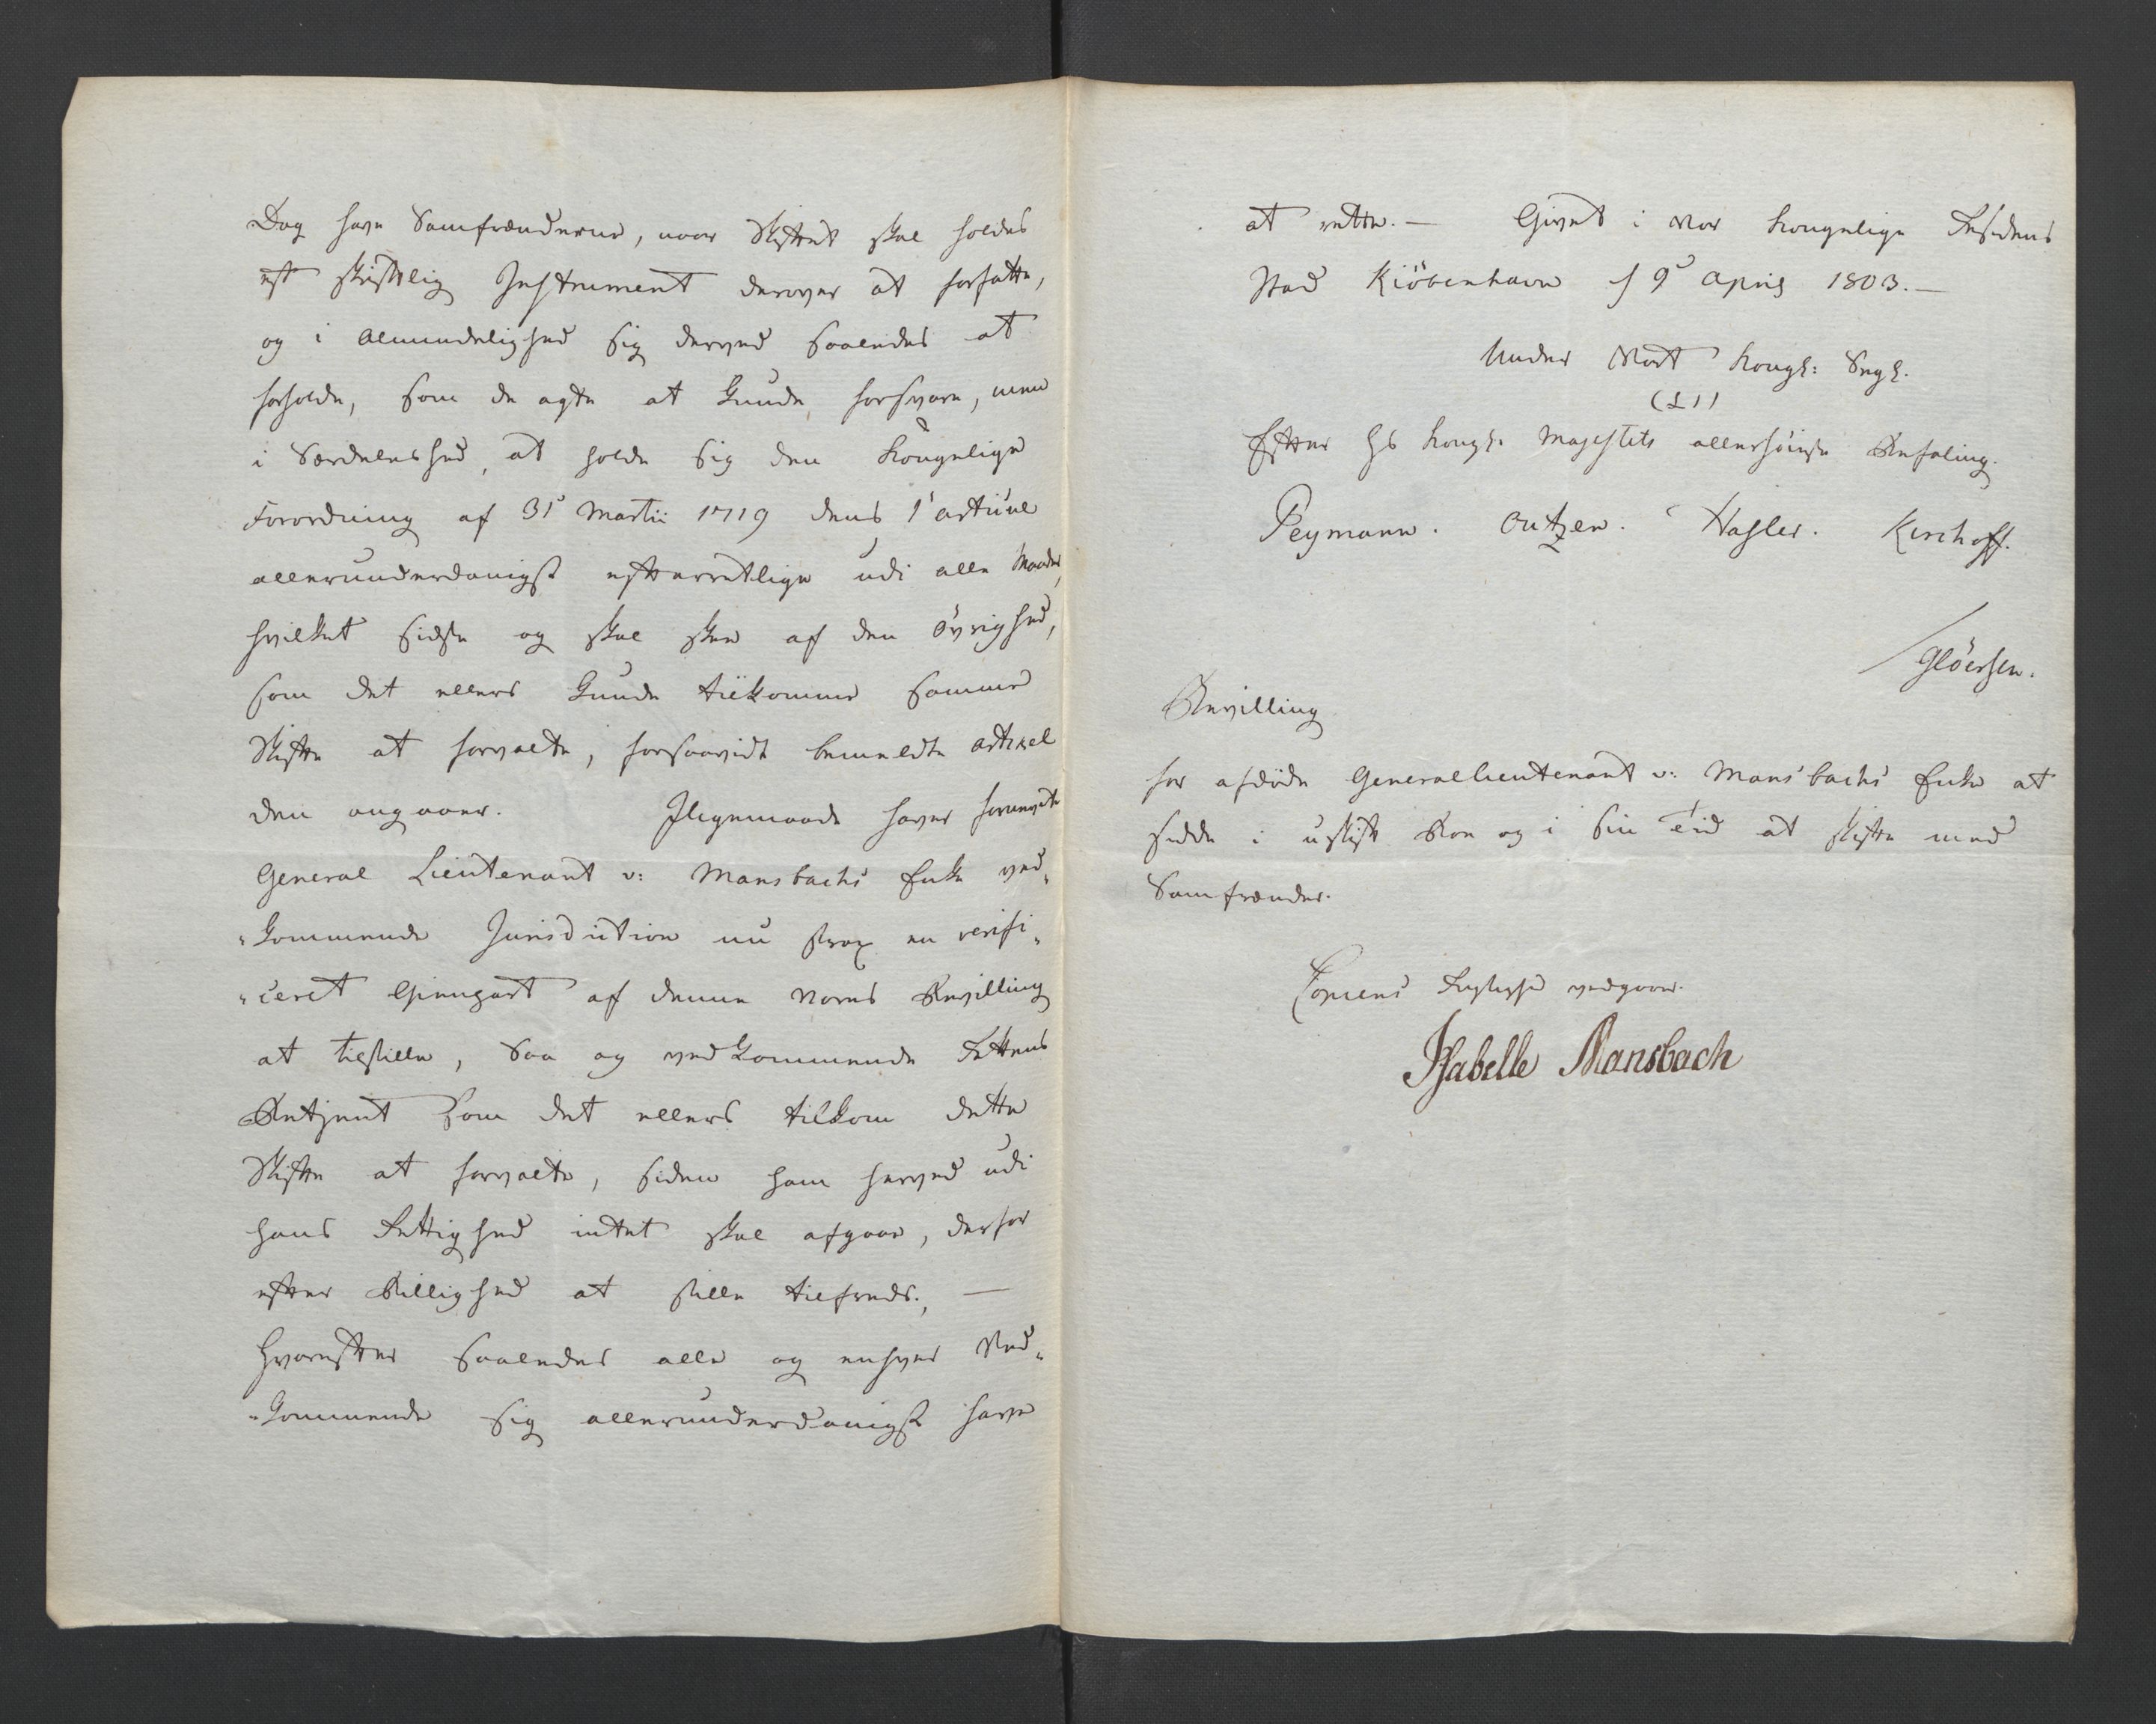 Dog have Samfrænderne, naar Skiftet skal holdes
et skriftlig Instrument derover at forfatte,
og i Almindelighed sig derved saaledes at
forholde, som de agte at kunde forsvare, men
i Særdeleshed, at holde sig den kongelige
Forordning af 31' Martii 1719 dens 1' Articul
allerunderdanigst efterretlige udi alle Maader,
hvilket sidste og skal skee af den Øvrighed,
som det ellers kunde tilkomme samme
Skifte at forvalte, forsaavidt bemeldte Artikel
den angaaer. Iligemaade haver forneunte
General Lieutenant v: Mansbachs Enke ved„
„kommende Jurisdiction nu strax en verifi„
„ceret Gienpart af denne Vores Bevilling
at tilstille, saa og vedkommende Rettens
Betjent som det ellers tilkom dette
Skifte at forvalte, siden ham herved udi
hans Rettighed intet skal afgaae, derfor
efter Billighed at stille tilfreds., —
Hvorefter saaledes alle og enhver Ved„
„kommende sig allerunderdanigst have
at rette. — Givet i Vor kongelige Residens
Stad Kiöbenhavn d 9' April 1803. —
Under Vort kongl: Segl.
(LS)
Efter Hs kongl. Majestets allerhöieste Befaling.
Peymann. Outzen. Hasler. Kirchoff.
/Glöersen.
Bevilling
for afdöde Generallieutenant v: Mansbachs Enke at
sidde i uskift Boe og i sin Tid at skifte med
Samfrænder.
Copiens Rigtighed vedgaaer.
Isabelle Mansbach